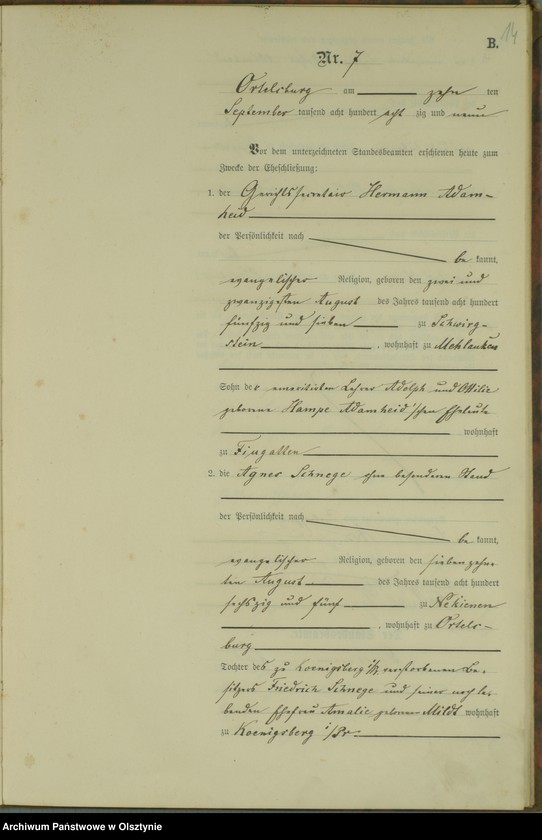 B.
14
Nr. 7
Ortelsburg am zehn ten
September tausend acht hundert acht zig und neun
Vor dem unterzeichneten Standesbeamten erschienen heute zum
Zwecke der Eheschließung:
1. der Gerichtssecretair Hermann Adam-
heid
der Persönlichkeit nach
be kannt,
evangelischer Religion, geboren den zwei und
zwanzigsten August des Jahres tausend acht hundert
fünfzig und sieben zu Schwirg-
stein, wohnhaft zu Mehlauken
Sohn des emeritirten Lehrer Adolph und Ottilie
geborene Hampe Adamheid'schen Eheleute
wohnhaft
zu Fingatten
2. die Agnes Schnege ohne besonderen Stand
der Persönlichkeit nach
be kannt,
evangelischer Religion, geboren den siebenzehn-
ten August des Jahres tausend acht hundert
sechszig und fünf zu Nekienen
, wohnhaft zu Ortels-
burg
Tochter des zu Koenigsberg i/Pr verstorbenen Be-
sitzers Friedrich Schnege und seiner noch le-
benden Ehefrau Amalie geborene Mildt wohnhaft
zu Koenigsberg i/Pr
Archiwum Państwowe w Olsztynie